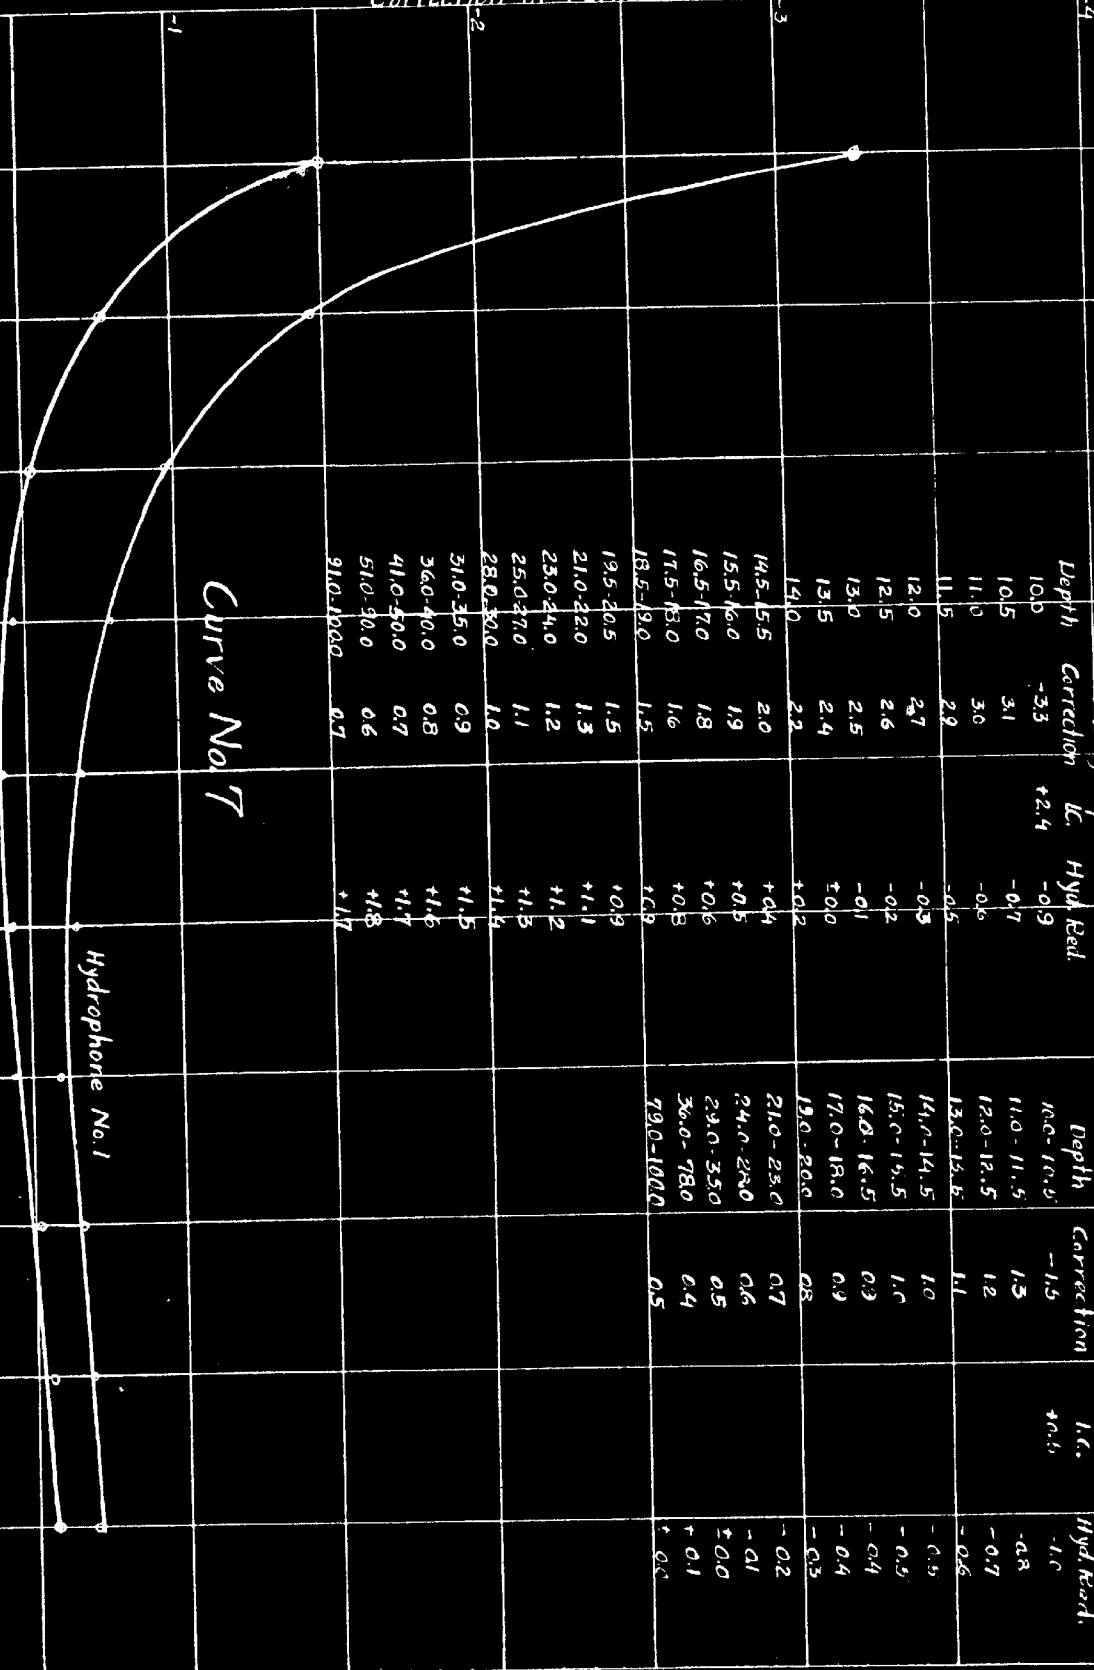 -1
-2
-3
Depth Correction I.C. Hyd. Red.
10.0 -3.3 +2.4 -0.9
10.5 3.1 -0.7
11.0 3.0 -0.6
11.5 2.9 -0.5
12.0 2.7 -0.3
12.5 2.6 -0.2
13.0 2.5 -0.1
13.5 2.4 ±0.0
14.0 2.2 +0.2
14.5-15.5 2.0 +0.4
15.5-16.0 1.9 +0.5
16.5-17.0 1.8 +0.6
17.5-18.0 1.6 +0.8
18.5-19.0 1.5 +0.9
19.5-20.5 1.5 +0.9
21.0-22.0 1.3 +1.1
23.0-24.0 1.2 +1.2
25.0-27.0 1.1 +1.3
28.0-30.0 1.0 +1.4
31.0-35.0 0.9 +1.5
36.0-40.0 0.8 +1.6
41.0-50.0 0.7 +1.7
51.0-90.0 0.6 +1.8
91.0-100.0 0.7 +1.7
Depth Correction I.C.
10.0-10.5 -1.5 -1.0
11.0-11.5 1.3 -0.8
12.0-12.5 1.2 -0.7
1.1 -0.6
14.0-14.5 1.0 -0.5
15.0-15.5 1.0 -0.5
16.0-16.5 0.9 -0.4
17.0-18.0 0.9 -0.4
19.0-20.0 0.8 -0.3
21.0-23.0 0.7 -0.2
0.6 -0.1
29.0-35.0 0.5 ±0.0
36.0-78.0 0.4 +0.1
79.0-100.0 0.5
Curve No. 7
Hydrophone No. 1